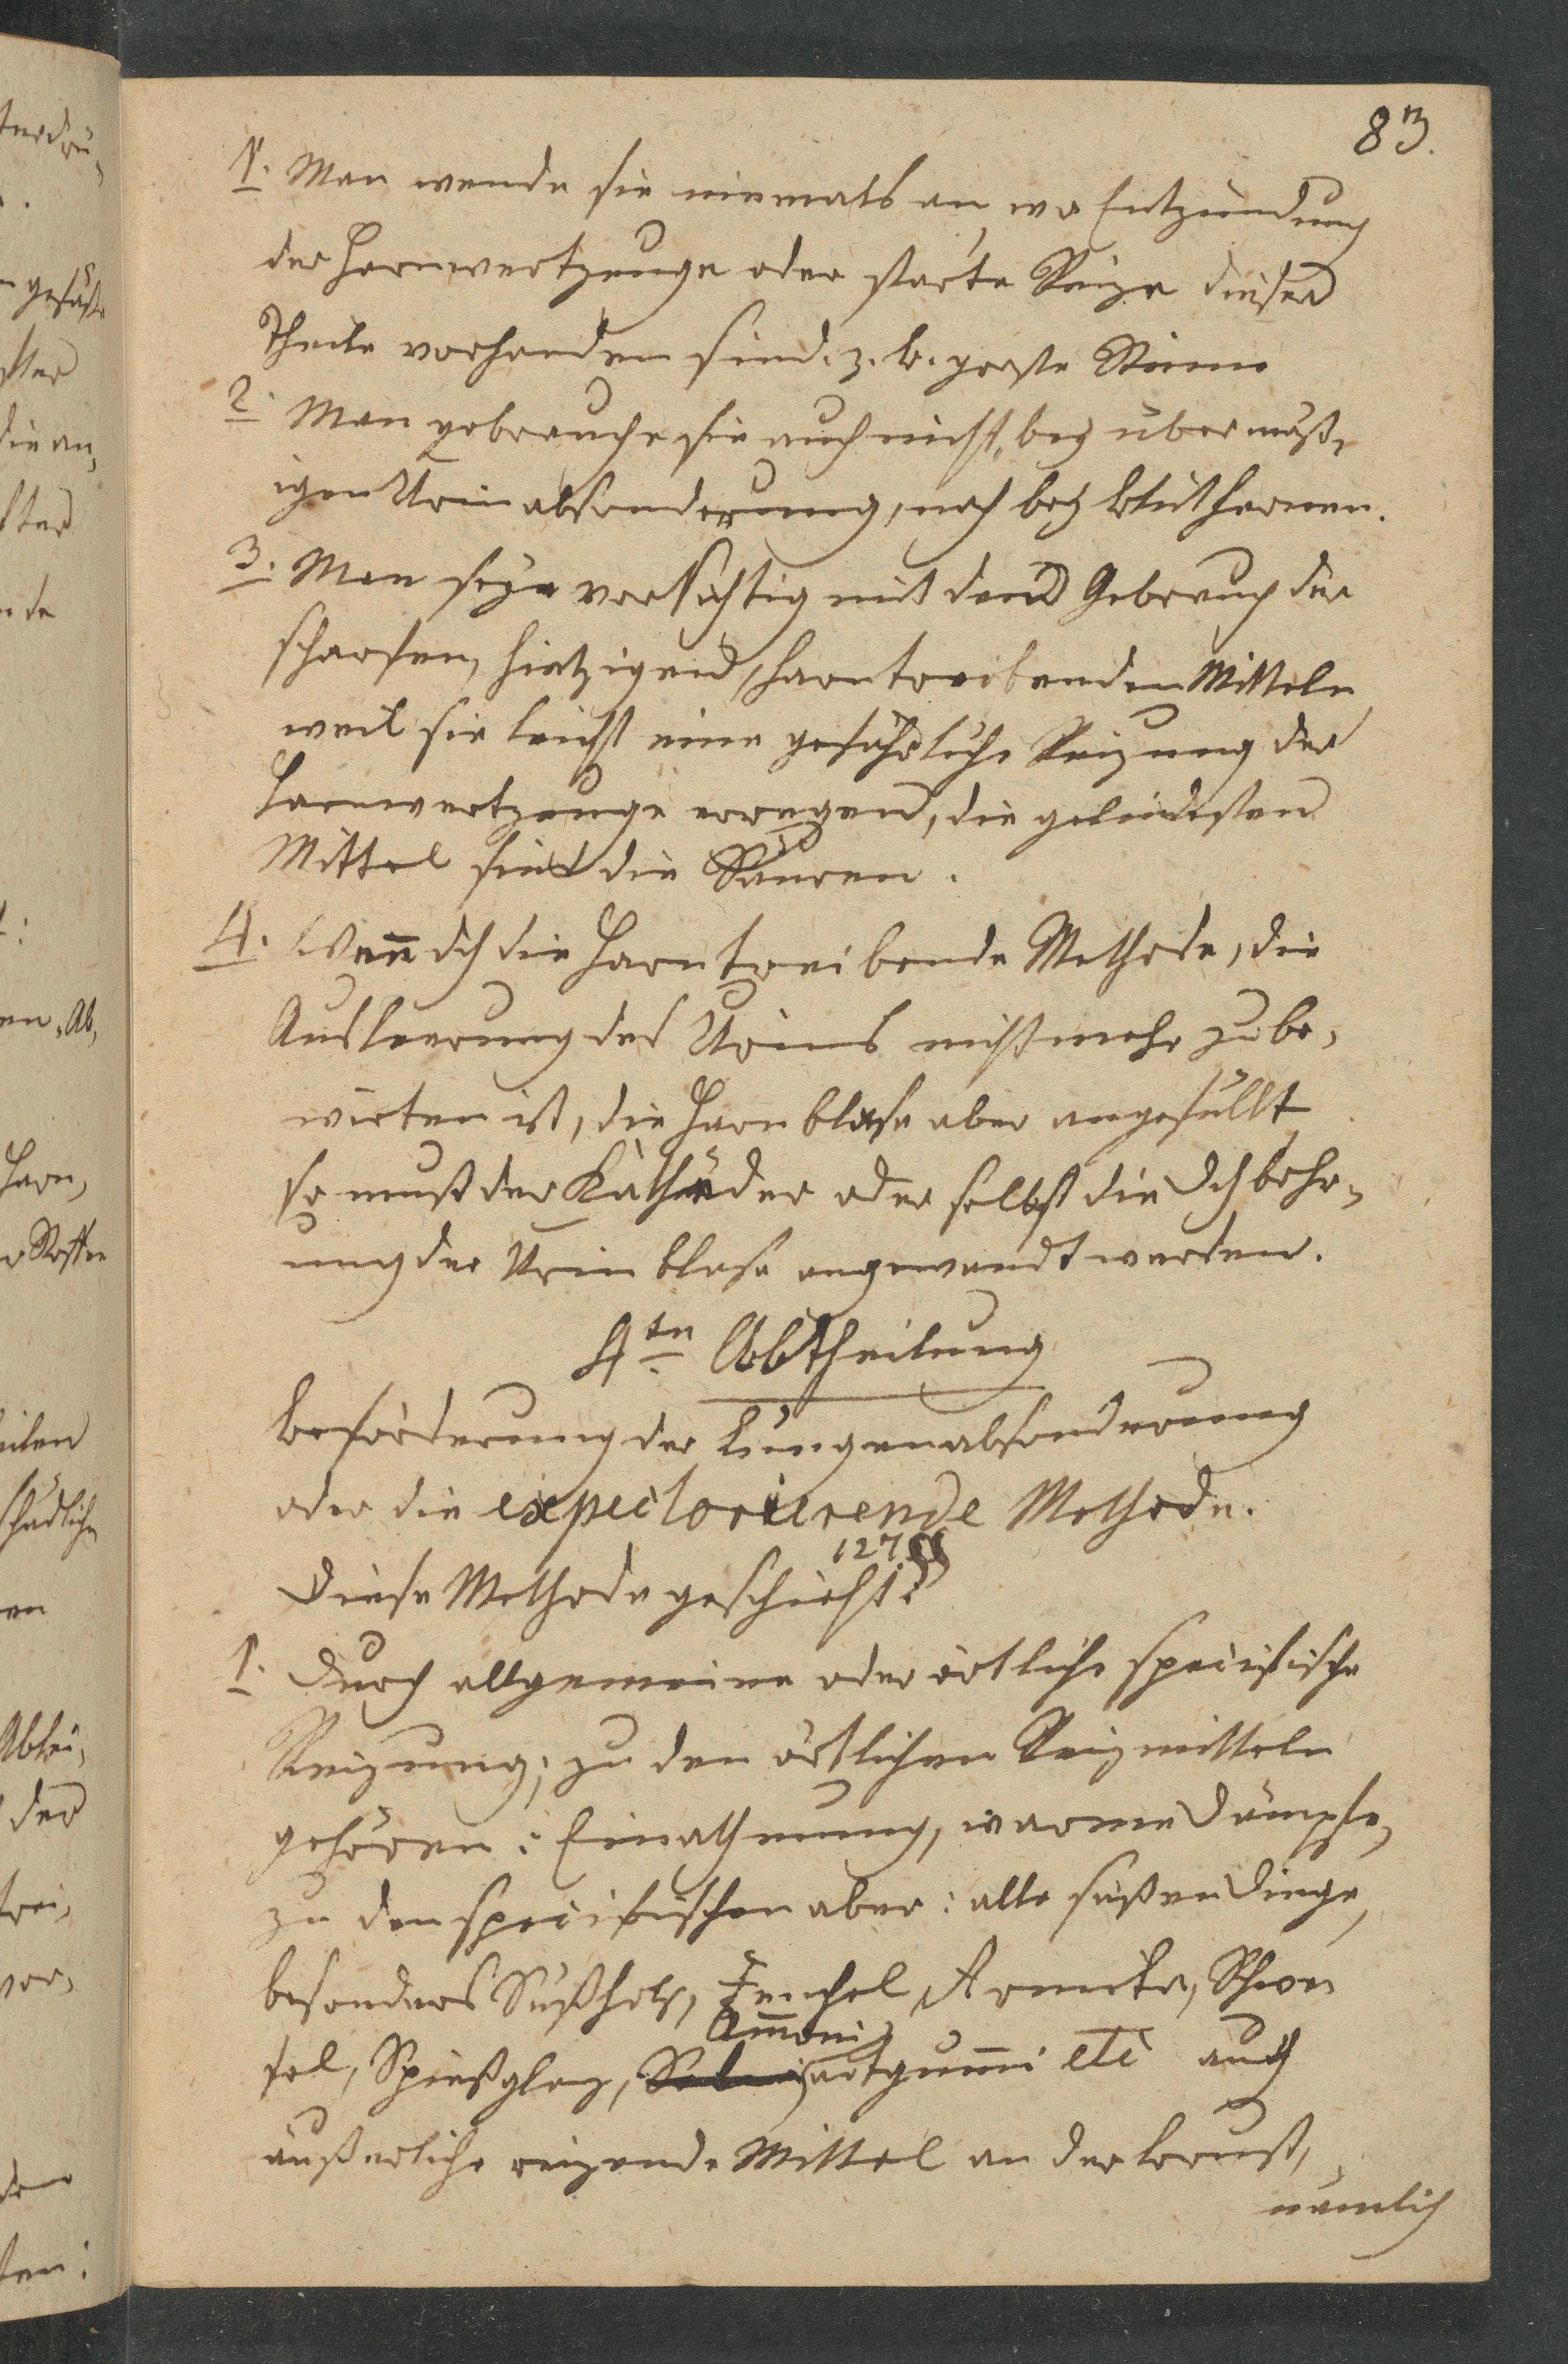 83.
1. Man wende sie niemals an, wo Entzündung
der Harnwerkzeuge oder starke Reize dieser
Theile vorhanden sind. z. b. große Steine
2. Man gebrauche sie auch nicht, bey übermäß,
igen Urinabsonderung, noch bey bluthernen.
3. Man seye vorsichtig mit dem Gebrauch der
scharfen, hietzigend, harntreibenden Mitteln
weil sie leicht eine gefährliche Reizung der
Harnwerkzeuge erregend, die gelindesten
Mittel sind die Säuren.
4. Wen̄ dch die Harntreibende Methode, die
Ausleerung des Urins nicht mehr zu be,
wirken ist, die Harnblase aber angefüllt
so muß der Kathäder oder selbst die Dchbohr,
ung der Urinblase angewendt werden.
4te Abtheilung
Beförderung der Lungenabsonderung
oder die expectorierende Methode.
127 §
Diese Methode geschieht:
1. Durch allgemeine oder örtliche specifische
Reizung; zu den örtlichen Reizmitteln
gehören: Einathmung, warme Dämpfe,
zu den specifischen aber: alle süßen Dinge,
besonders Süßholz, Fenchel, Arnicka, Schwe
Am̄oni
fel, Spießglanz, akgum̄i etc auch
äußerliche reizende Mittel an der brust,
nämlich
terdrü,
gefäße
die an,
en, Ab,
Harn,
eilen
schädliche
Ablei,
der
trei,
vor,